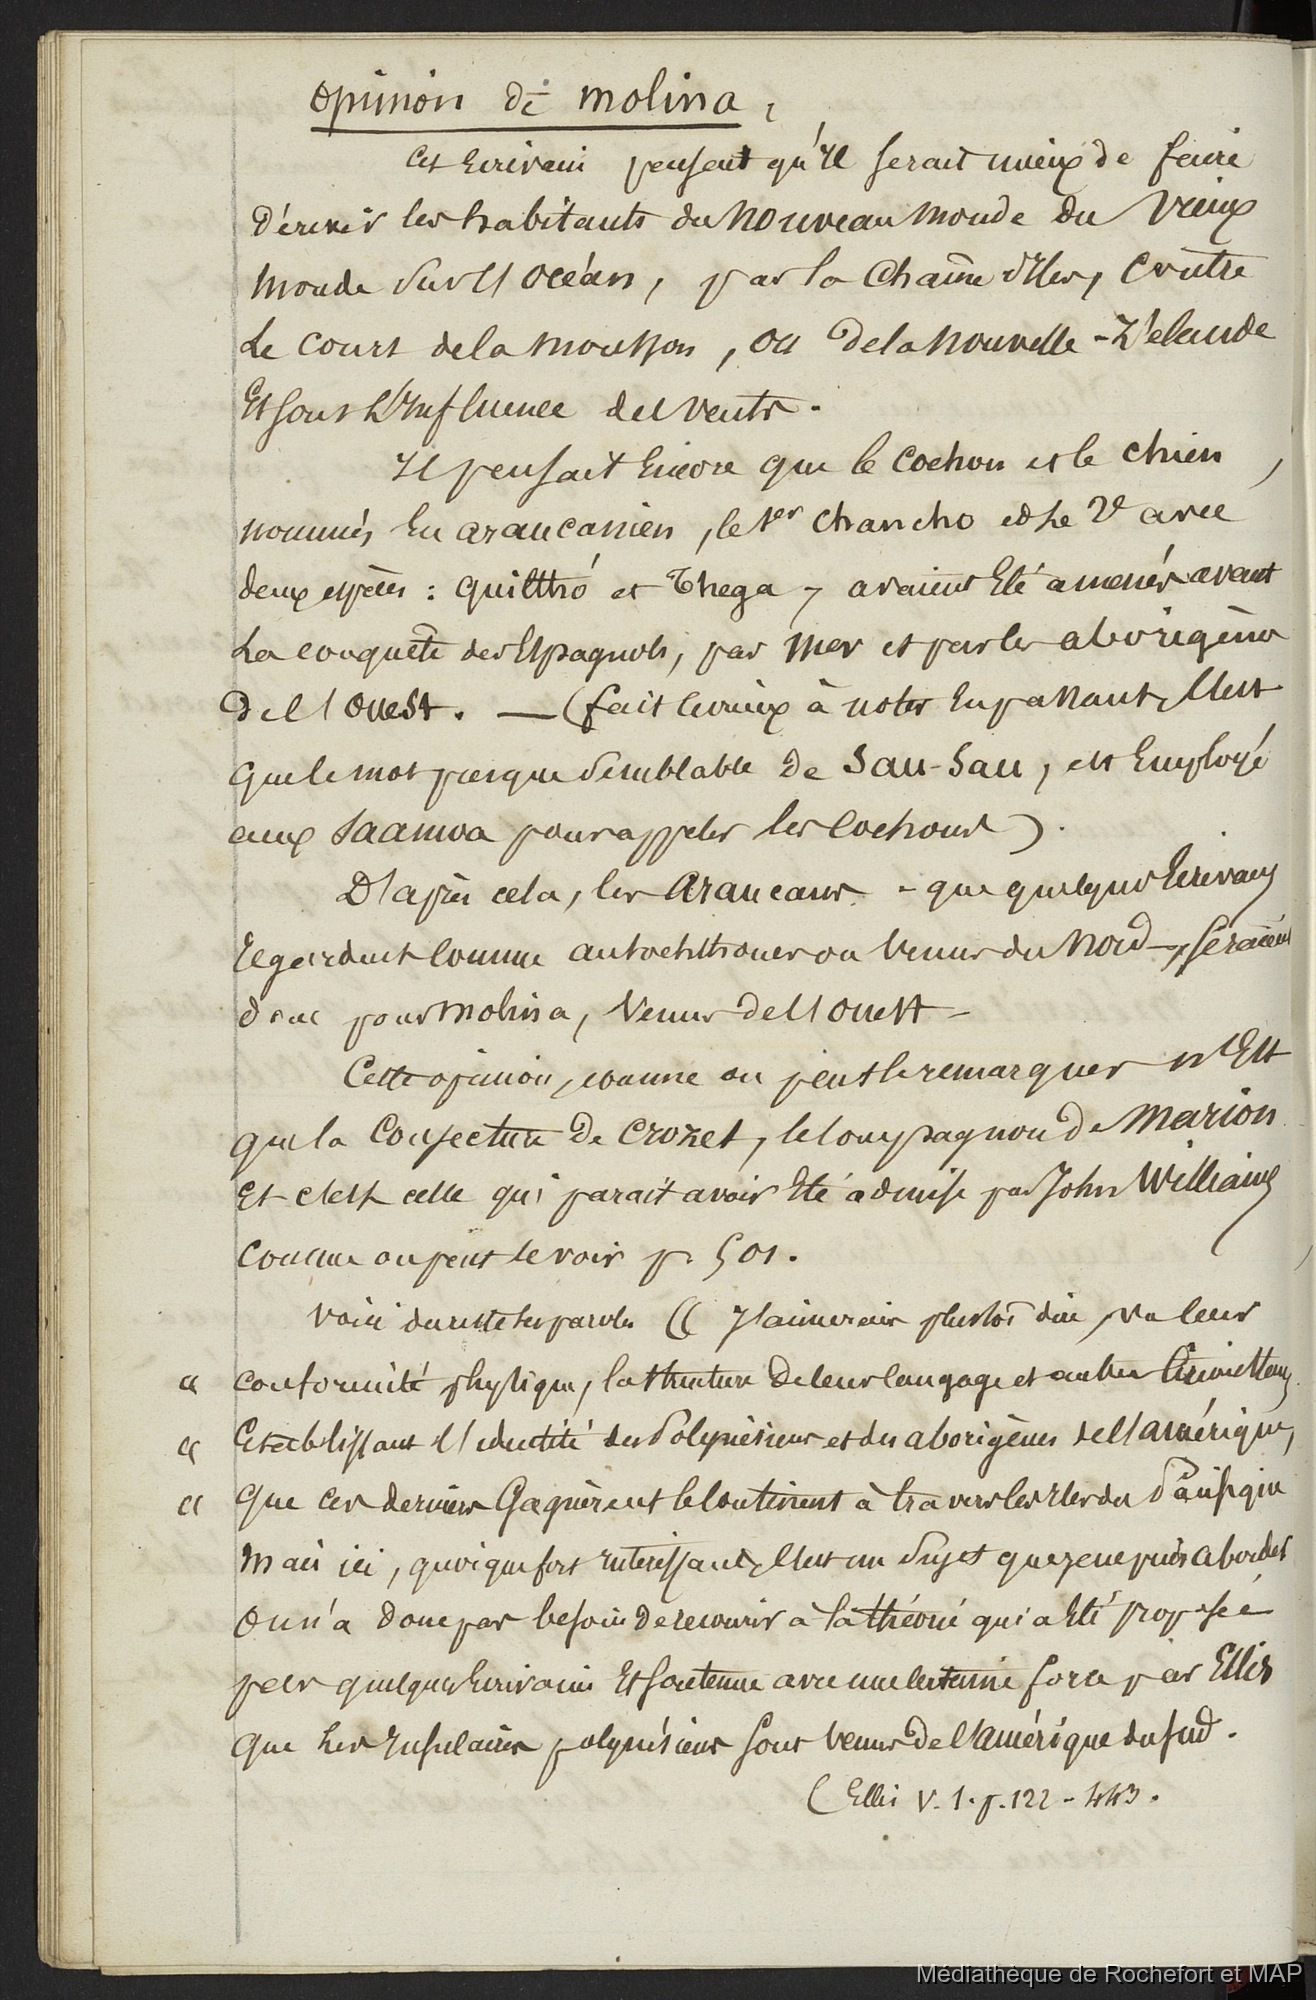 Opinion de Molina,
Cet Ecrivain pensait qu'Il serait mieux de faire
dériver les habitants du Nouveau Monde du Vieux
Monde sur l'Océan, par la Chaine d'Iles, Contre
Le Cours de la Mousson, ou de la Nouvelle-Zélande
Et sous L'Influence des vents.
Il pensait Encore que le Cochon et le Chien,
nommés En araucanien, le 1er Chancho et Le 2e avec
deux espèces : quilthó et Thega, avaient Eté amenés avant
La Conquête des Espagnols, par Mer et par les aborigènes
de l'Ouest. — (fait Curieux à noter En passant, c'est
que le mot presque semblable de Sau-Sau, est Employé
aux Saamoa pour appeler les Cochons).
D'après cela, les Araucans - que quelques Ecrivains
Regardent Comme autochthones ou Venus du Nord -, seraient
donc pour Molina, Venus de l'Ouest -
Cette opinion, comme on peut le remarquer n'Est
que la Conjecture de Crozet, le Compagnon de Marion
Et c'est celle qui parait avoir Eté admise par John Williams
Comme on peut le voir p. 501.
Voici du reste ses paroles (( J'aimerais plustôt dire, vu leur
" conformité physique, la structure de leur langage et autres Circonstances
" Etablissant l'identité des Polynésiens et des aborigènes de l'amérique,
" que ces derniers Gagnèrent le Continent à travers les Iles du Pacifique
Mais ici, quoique fort Intéressant, c'est un sujet que je ne puis aborder
On n'a donc pas besoin de recourir à la théorie qui a Eté proposée
par quelques Ecrivains Et soutenue avec une Certaine force par Ellis
que Les Insulaires polynésiens sont Venus de l'Amérique du Sud.
(Ellis V. 1. p. 122 - 443.
Médiathèque de Rochefort et MAP